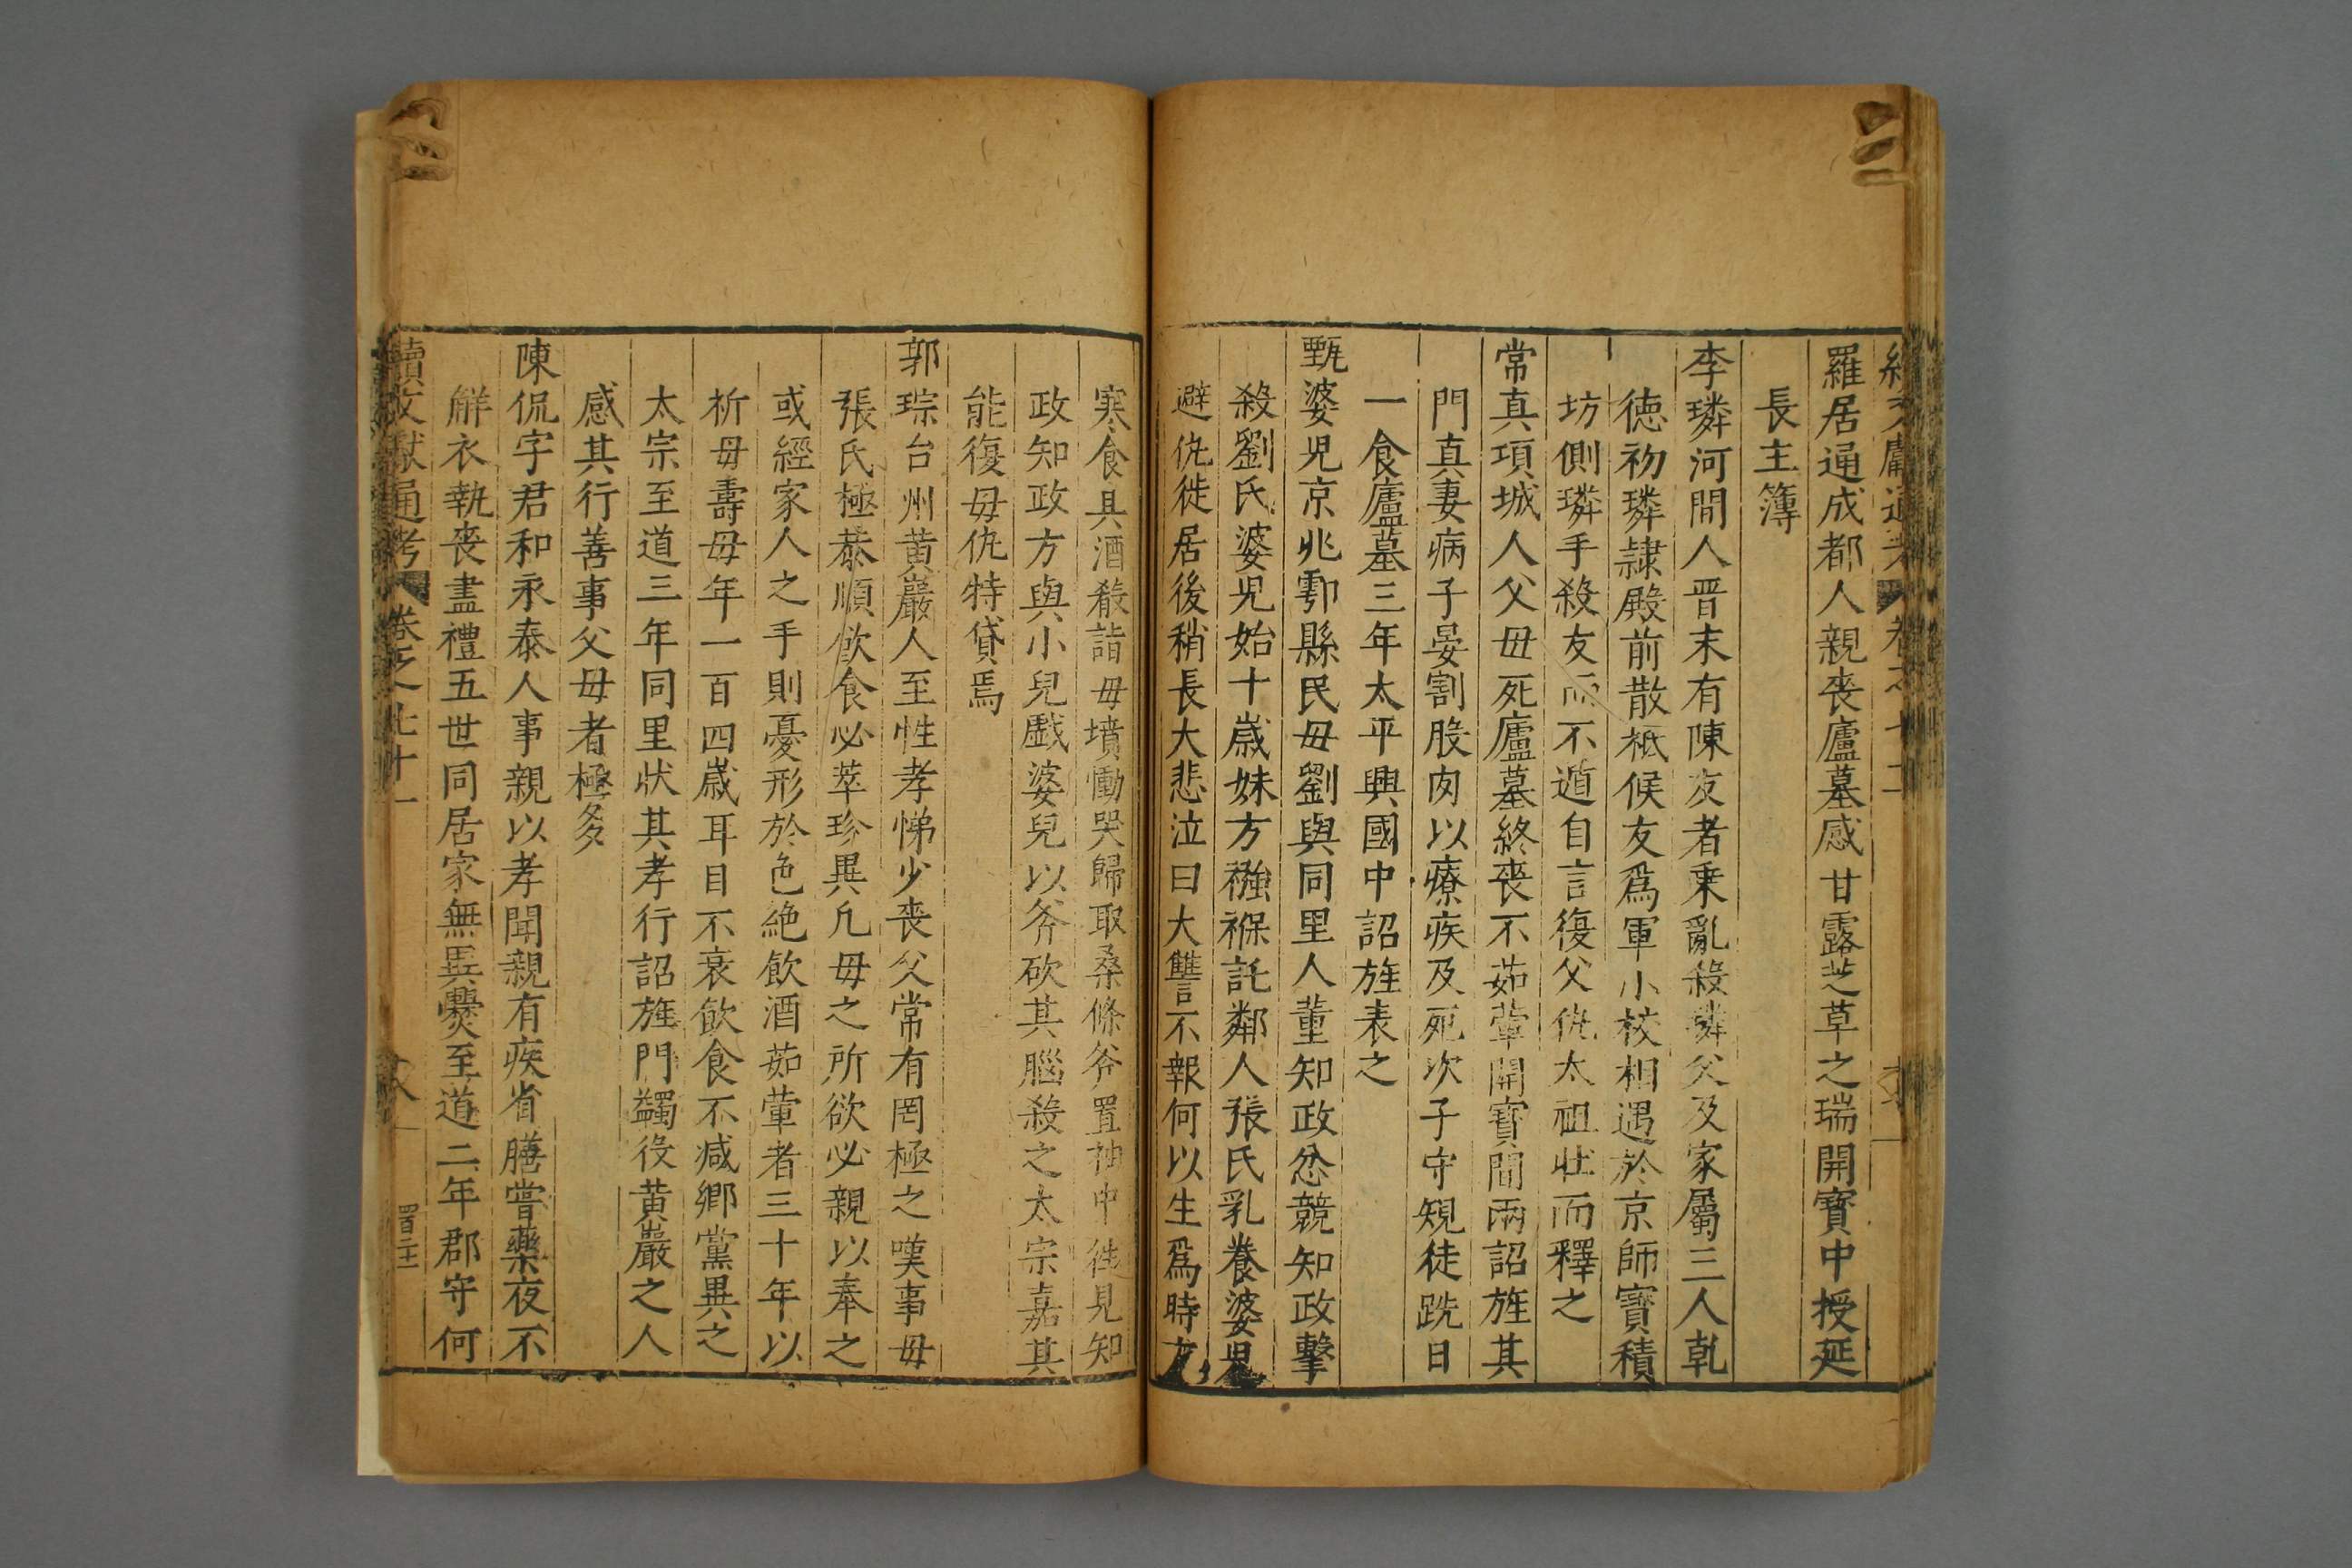 續文獻通考 卷之七十二
羅居通成都人親喪廬墓感甘露芝草之瑞開寳中授延
長主簿
李璘河間人晋末有陳友者乗亂殺璘父及家屬三人乹
徳初璘隷殿前散祗候友爲軍小校相遇於京師寳積
坊側璘手殺友而不遁自言復父仇太祖壮而釋之
常真項城人父毋死廬墓終喪不茹葷開寳間兩詔旌其
門真妻病子晏割股肉以療疾及死次子守規徒跣日
一食廬墓三年太平興國中詔旌表之
甄婆児京兆鄠縣民毋劉與同里人董知政忿競知政擊
殺劉氏婆児始十歳妹方襁褓託鄰人張氏乳養婆児
避仇徙居後稍長大悲泣曰大讐不報何以生爲時方
寒食具酒殽詣毋墳慟哭歸取桑條斧置袖中徃見知
政知政方與小兒戯婆兒以斧砍其腦殺之太宗嘉其
能復毋仇特貸焉
郭琮台州黄巖人至性孝悌少喪父常有罔極之嘆事毋
張氏極恭順飲食必萃珍異凡毋之所欲必親以奉之
或經家人之手則憂形於色絶飲酒茹葷者三十年以
祈毋壽毋年一百四歳耳目不衰飲食不减鄉黨異之
太宗至道三年同里状其孝行詔旌門蠲役黄巖之人
感其行善事父毋者極多
陳侃字君和永泰人事親以孝聞親有疾省膳嘗藥夜不
解衣執喪盡禮五世同居家無異㸑至道二年郡守何
續文獻通考 卷之七十一